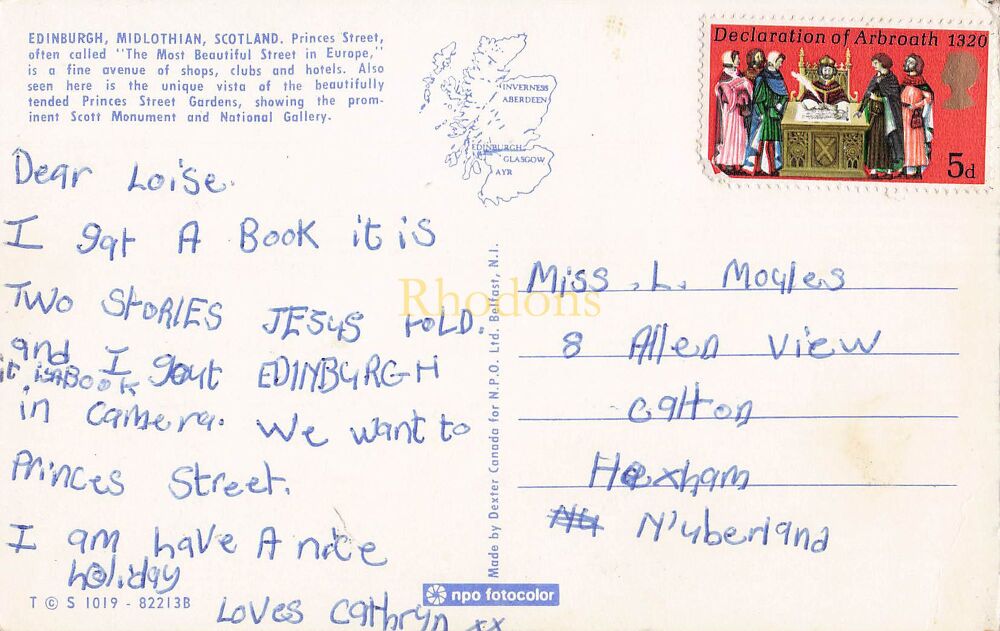 EDINBURGH, MIDLOTHIAN, SCOTLAND. Princes Street,
often called "The Most Beautiful Street in Europe,"
is a fine avenue of shops, clubs and hotels. Also
seen here is the unique vista of the beautifully
tended Princes Street Gardens, showing the prom-
inent Scott Monument and National Gallery.
INVERNESS
ABERDEEN
EDINBURGH
GLASGOW
AYR
Declaration of Arbroath 1320
5d
Dear Loise.
I gat A Book it is
TWO StORIES JESUS tOLD.
and I gout EDINBURGH
it is A Book
in camera. We want to
Princes Street.
I am have A nice
holiday
Loves Cathryn xx
Miss. L. Moyles
8 Allen View
Catton
Hexham
N'uberland
Rhodons
Made by Dexter Canada for N.P.O. Ltd. Belfast, N.I.
T © S 1019 - 82213B
npo fotocolor